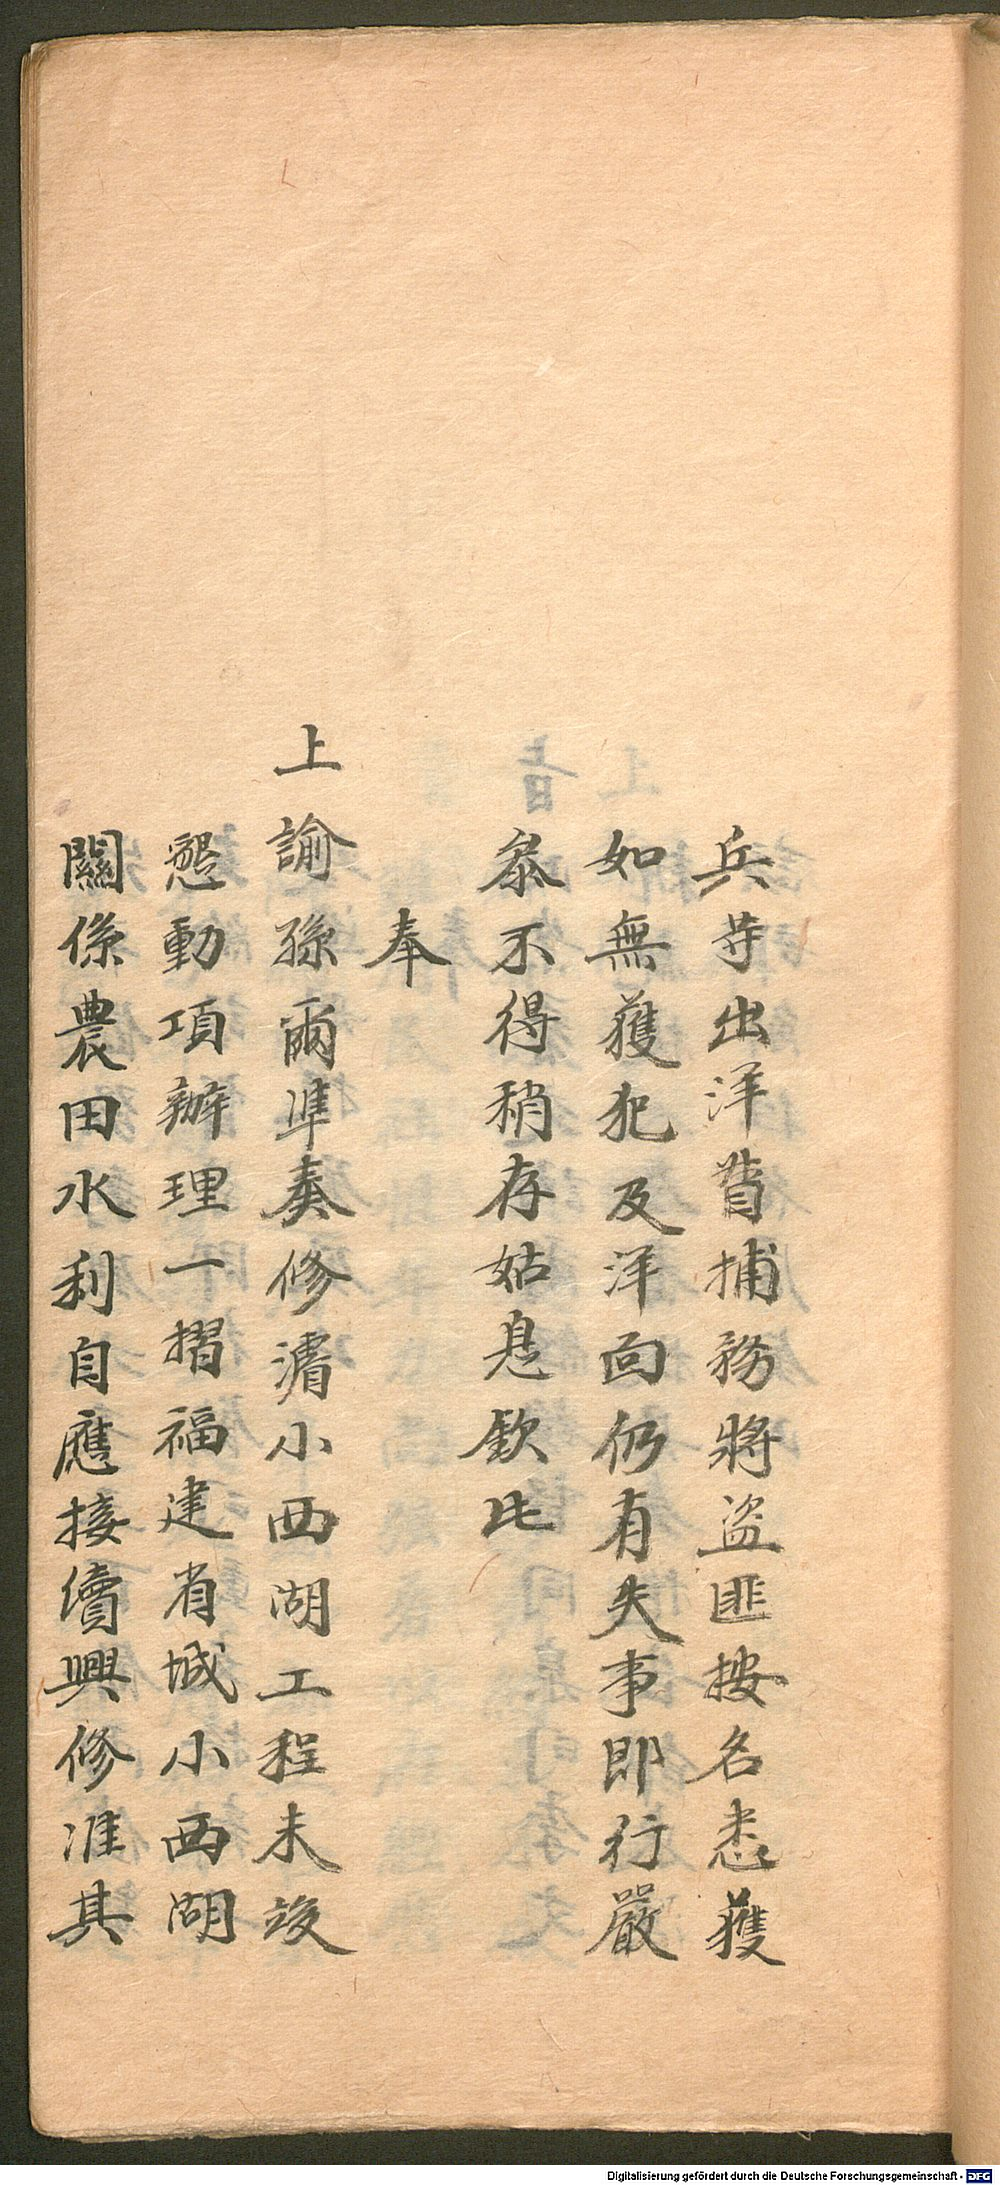 兵等出洋督捕務將盜匪按名悉獲
如無獲犯及洋面仍有失事即行嚴
叅不得稍存姑息欽此
奉
上諭孫爾準奏修濬小西湖工程未竣
懇動項辦理一摺福建省城小西湖
關係農田水利自應接續興修准其
Digitalisierung gefördert durch die Deutsche Forschungsgemeinschaft - DFG